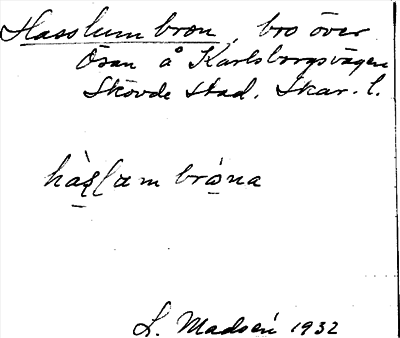 Hasslum bron, bro över
Ösan å Karlsborgsvägen
Skövde stad. Skar. l.
L. Madsén 1932